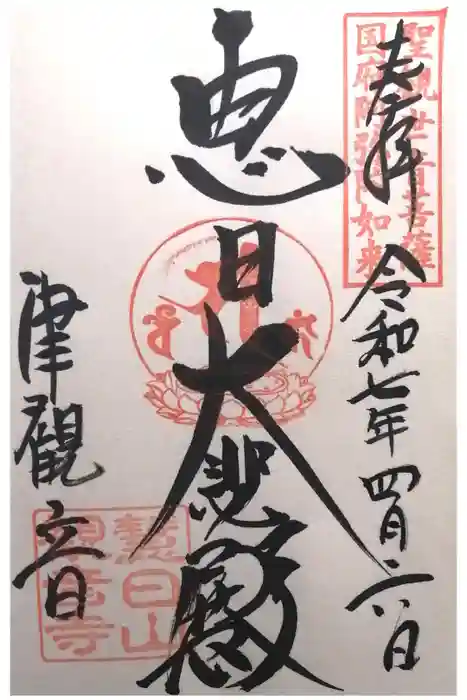 奉拝
聖観世音菩薩
国府阿弥陀如来
令和七年四月六日
恵日大悲殿
津觀音
慧日山
観音寺